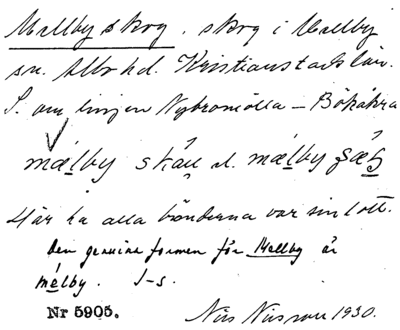 Mellby skog, skog i Mellby
sn. Albo hd. Kristianstads län.
S. om linjen Nybromölla – Bökåkra
mælby skåu el. mælby
Här ha alla bönderna var sin lott.
Den genuina formen för Mellby är
mélby. I-s.
Nr 5905. Nils Nilsson 1930.